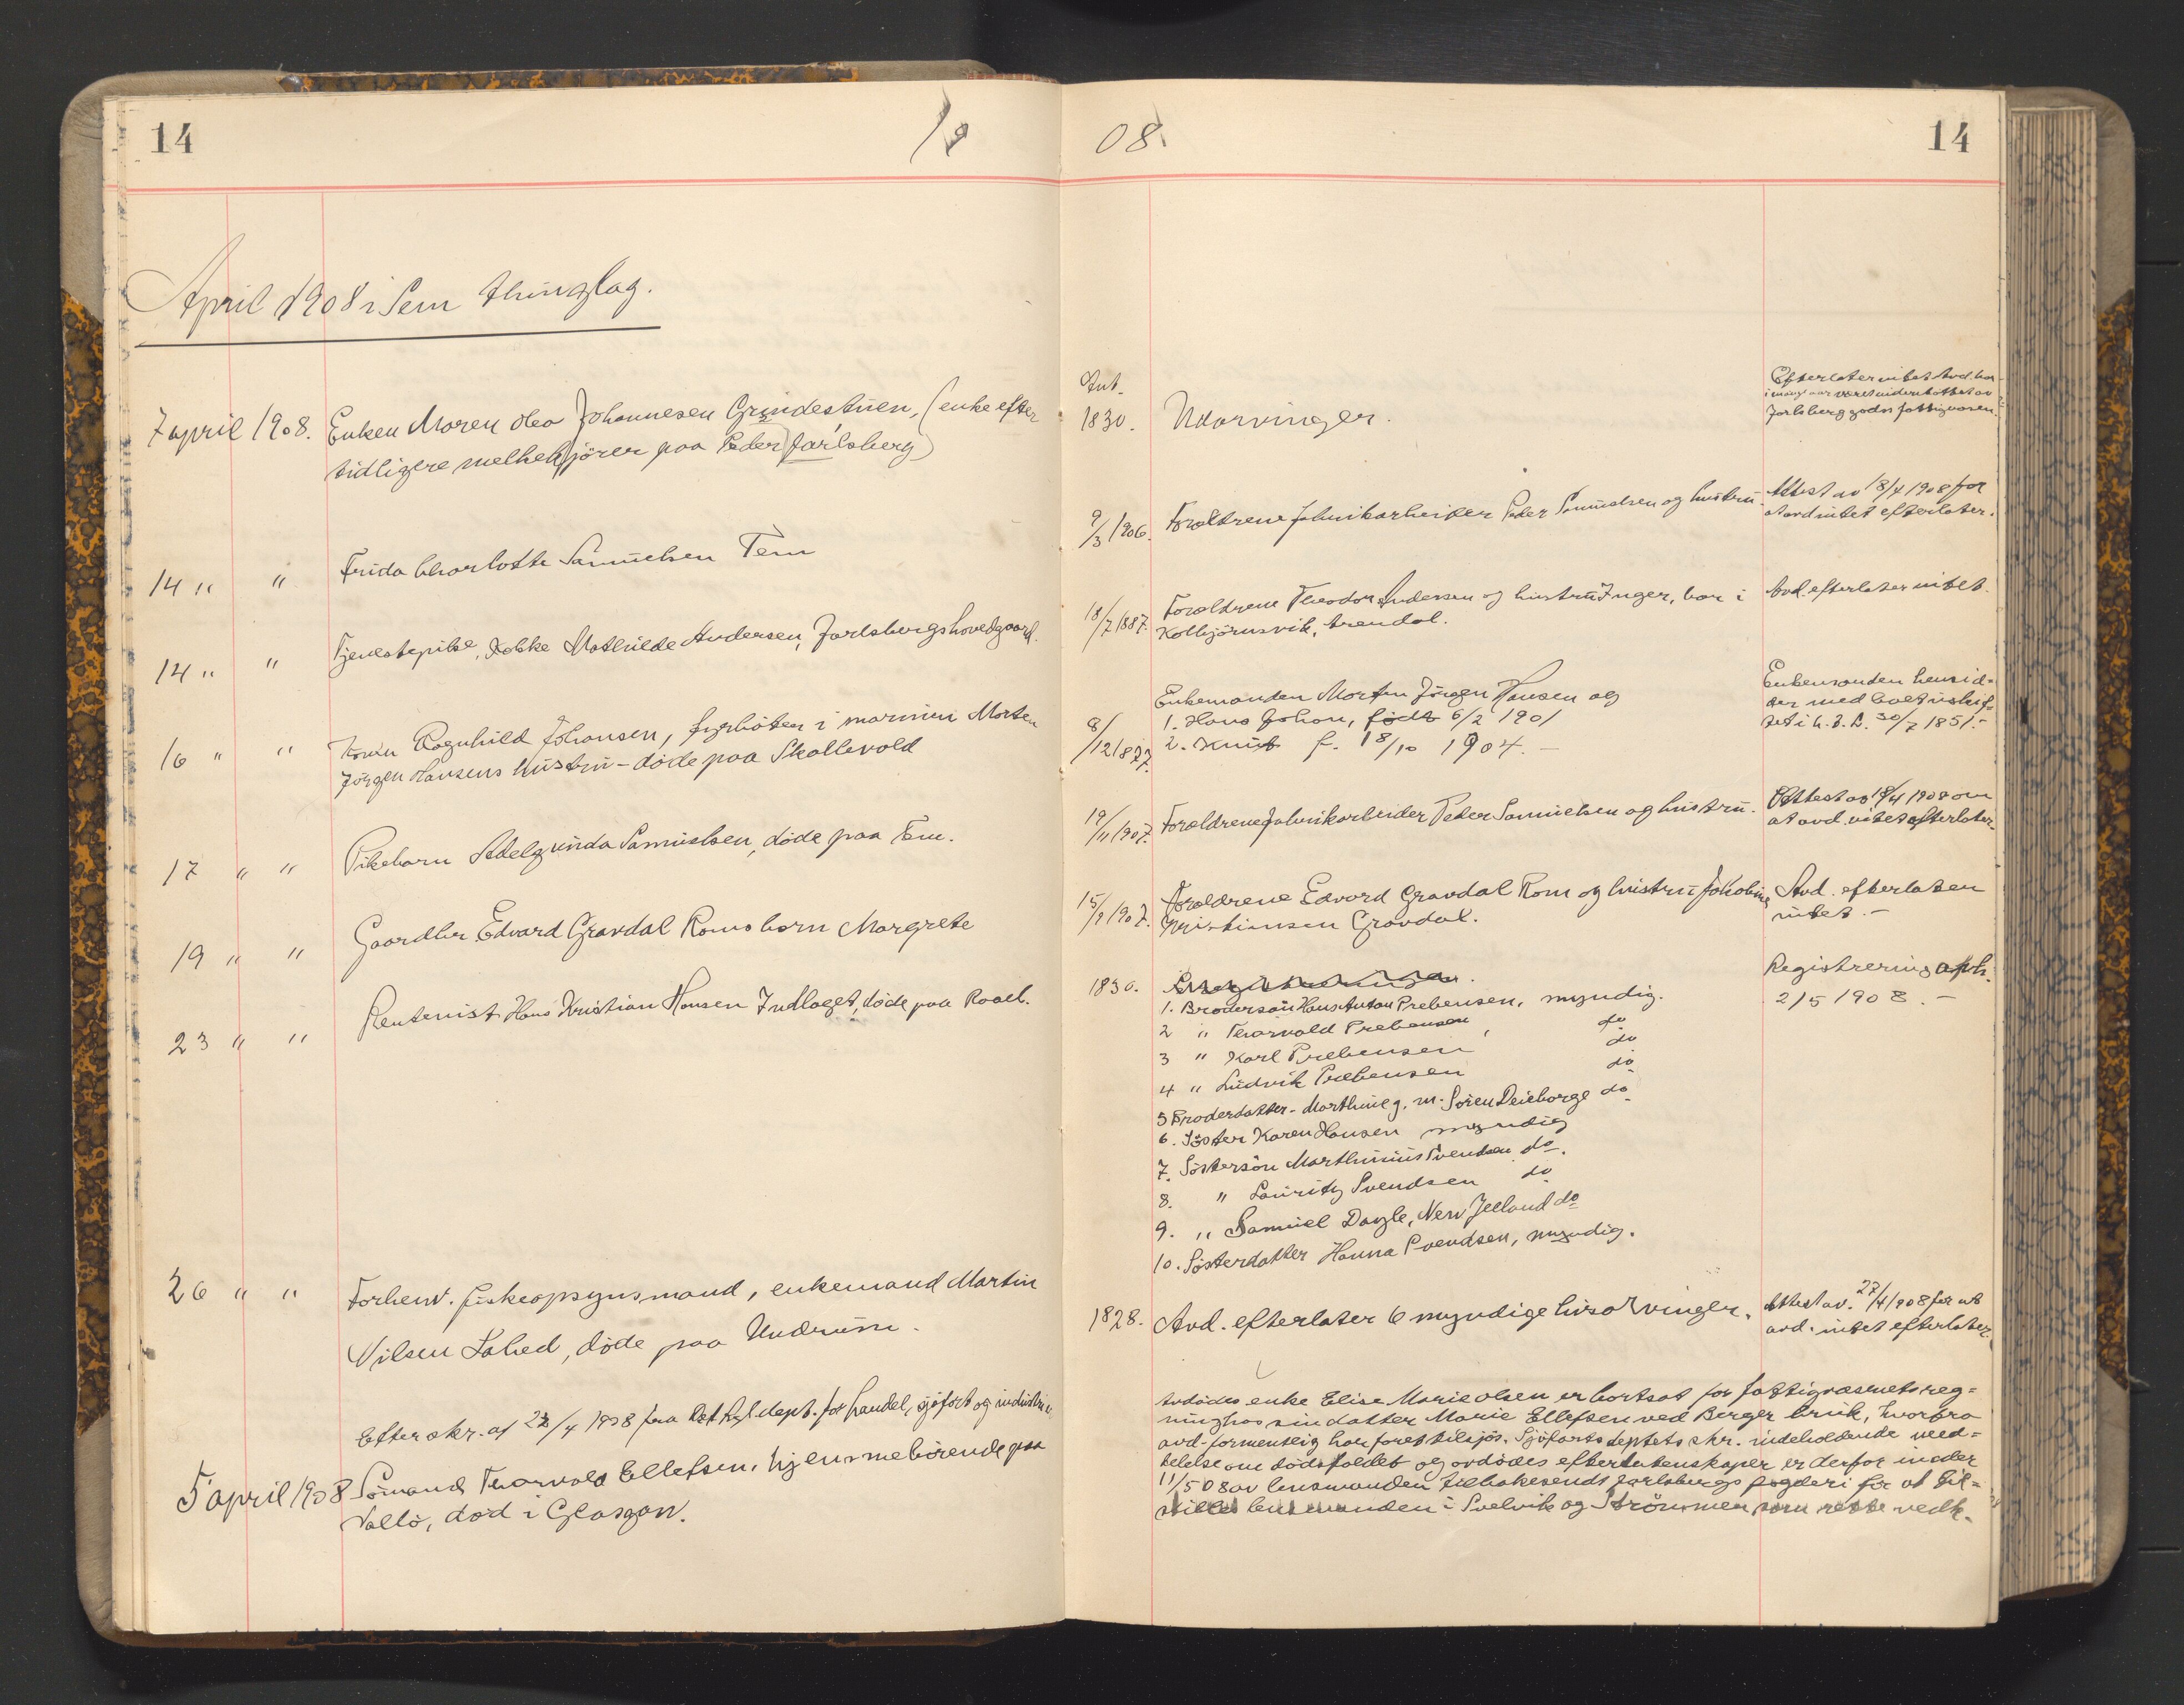 14
19
08.
14
April 1908 i Sem thinglag.
7 april 1908.
Enken Maren Olea Johannesen Gryndestuen, (enke efter
tidligere melkekjörer paa Peder Jarlsberg)
Ant.
1830.
Utarvinger.
Efterlater intet. Avd. har
i mange aar været understöttet av
Jarlsberg gods fattigvæsen.
14 " "
Frida Charlotte Samuelsen Tem
9/3 1906.
Forældrene fabrikarbeider Peder Samuelsen og hustru.
Attest av 18/4 1908 for
at avd intet efterlater.
14 " "
Tjenestepike, Mathilde Andersen, Jarlsbergs hovedgaard.
18/7 1887.
Forældrene Theodor Andersen og hustru Inger, bor i
Kolbjörnsvik, Arendal.
Avd. efterlater intet.
16 " "
Ragnhild Johansen, fyrböter i marinen Morten
Jörgen Hansens hustru - döde paa Skallevold
8/12 1877.
Enkemanden Morten Jörgen Hansen og
1. Hans Johan, födt 6/2 1901
2. Knut f. 18/10 1904. -
Enkemanden hensid-
der med boet uskif-
tet i h. t. L. 30/7 1851. -
17 " "
Pikebarn Adelgunda Samuelsen, döde paa Tem.
19/11 1907.
Forældrene fabrikarbeider Peder Samuelsen og hustru.
Attest av 18/4 1908 om
at avd. intet efterlater.
19 " "
Gaardbr. Edvard Gravdal Roms barn Margrete
15/9 1907.
Forældrene Edvard Gravdal Rom og hustru Jakobine
Kristiansen Gravdal.
Avd. efterlater
intet. -
23 " "
Rentenist Hans Kristian Hansen Indlaget, döde paa Roael.
1830.
1. Brodersön Hans Anton Prebensen, myndig.
2 " Thorvald Prebensen, do
3 " Karl Prebensen do
4 " Ludvik Prebensen do
5 Broderdatter - Marthine g. m. Sören Deieborge do
6. Söster Karen Hansen myndig
7. Söstersön Marthinius Svendsen do.
8. " Lauritz Svendsen do
9. " Samuel Dayle, New Zeeland do
10. Sösterdatter Hanna Svendsen, myndig.
Registrering afh.
2/5 1908. -
26 " "
Forhenv. fiskeopsynsmand, enkemand Martin
Nilsen Lahed, döde paa Undrum.
1828.
Avd. efterlater 6 myndige livsarvinger.
Attest av. 27/4 1908 for at
avd. intet efterlater.
Efter skr. af 22/4 1908 fra Det kgl. dept. for handel, sjöfart og industri
5 april 1908
Sömand Thorvald Ellefsen, hjemmehörende paa
Vallö, död i Glasgow.
Avdödes enke Elise Marie Olsen er bortsat for fattigvæsenets reg-
ning hos sin datter Marie Ellefsen ved Berger bruk, hvorfra
avd. formentlig har faret tilsjös. Sjöfartsdeptets skr. indeholdende med-
delelse om dödsfaldet og avdödes efterlatenskaper er derfor under
11/5 08 av lensmanden tilbakesendt Jarlsbergs fogderi for at til-
stilles lensmanden i Svelvik og Strömmen som rette vedk.